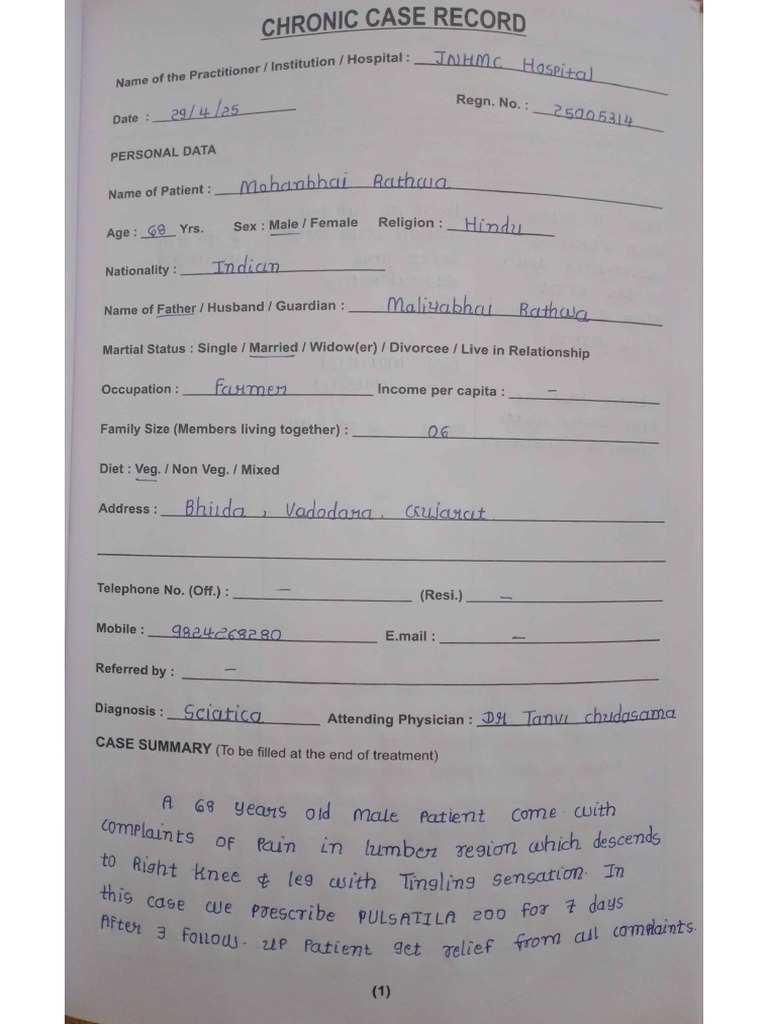 CHRONIC CASE RECORD
Name of the Practitioner / Institution / Hospital : JNHMC Hospital
Date : 29/4/25 Regn. No. : 25005314
PERSONAL DATA
Name of Patient : Mohanbhai Rathwa
Age : 68 Yrs. Sex : Male / Female Religion : Hindu
Nationality : Indian
Name of Father / Husband / Guardian : Maliyabhai Rathwa
Martial Status : Single / Married / Widow(er) / Divorcee / Live in Relationship
Occupation : Farmer Income per capita : –
Family Size (Members living together) : 06
Diet : Veg. / Non Veg. / Mixed
Address : Vadodara, Gujarat
Telephone No. (Off.) : – (Resi.) –
Mobile : 9824268280 E.mail : –
Referred by : –
Diagnosis : Sciatica Attending Physician : DR Tanvi Chudasama
CASE SUMMARY (To be filled at the end of treatment)
A 68 years old male patient come with
complaints of Pain in lumber region which descends
to Right knee & leg with Tingling sensation. In
this case we prescribe PULSATILA 200 for 7 days
After 3 follow-up patient get relief from all complaints.
(1)